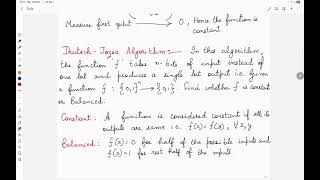 Measure first qubit 0, Hence the function is
constant.
Deutsch-Jozsa Algorithm:- In this algorithm,
the function 'f' takes n-bits of input instead of
one bit and produces a single bit output i.e. Given
a function f : {0,1}ⁿ → {0,1}. Find whether f is constat
or Balanced.
Constant: A function is considered constant if all its
outputs are same i.e. f(x)=f(y), ∀ x,y.
Balanced: f(x)=0 for half of the possible inputs and
f(x)=1 for rest half of the inputs.